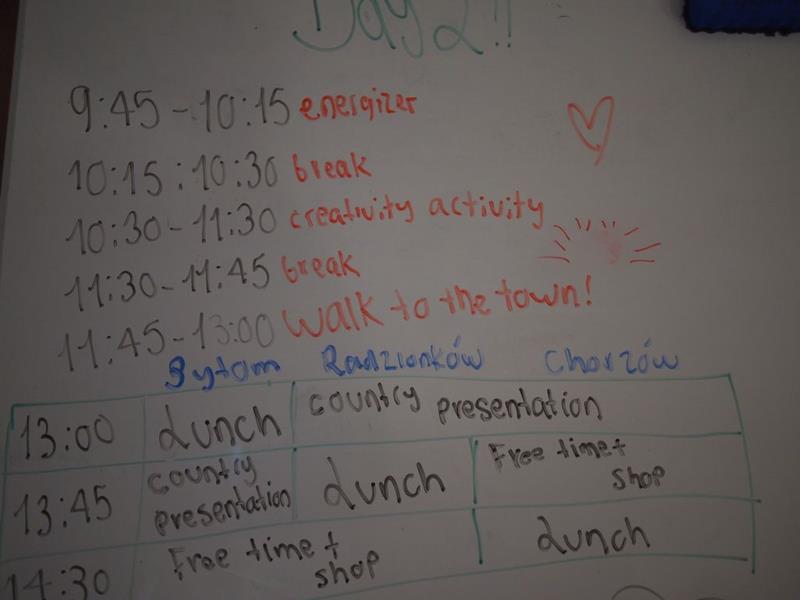 Day 2!!
9:45 - 10:15 energizer
10:15 : 10:30 break
10:30 - 11:30 creativity activity
11:30 - 11:45 break
11:45 - 13:00 walk to the town!
Bytom Radzionków Chorzów
13:00 Lunch country presentation
13:45 country presentation Lunch Free time + shop
14:30 Free time + shop Lunch